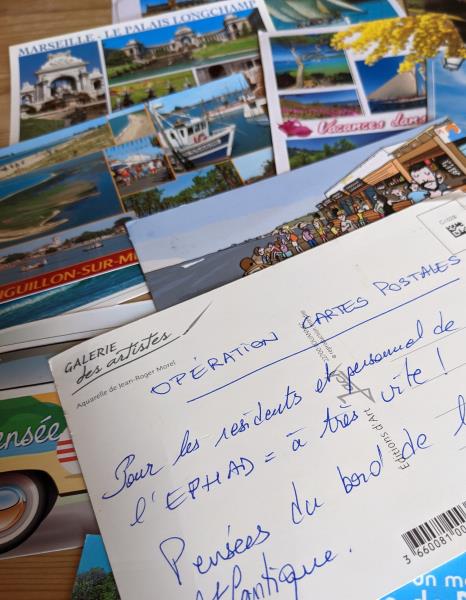 MARSEILLE - LE PALAIS LONGCHAMP
Vacances dans
AIGUILLON-SUR-M
GALERIE
des artistes
Aquarelle de Jean-Roger Morel
OPÉRATION CARTES POSTALES
Pour les résidents et personnel de
l'EPHAD = à très vite !
Pensées du bord de l
Atlantique.
Editions d'Art
ensée
3 660081 00